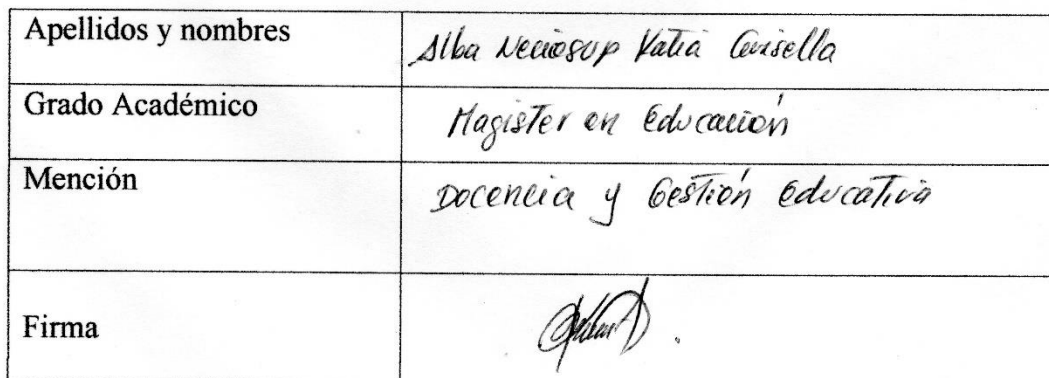 Apellidos y nombres Alba Neciosup Katia Grisella
Grado Académico Magister en Educación
Mención Docencia y Gestión Educativa
Firma